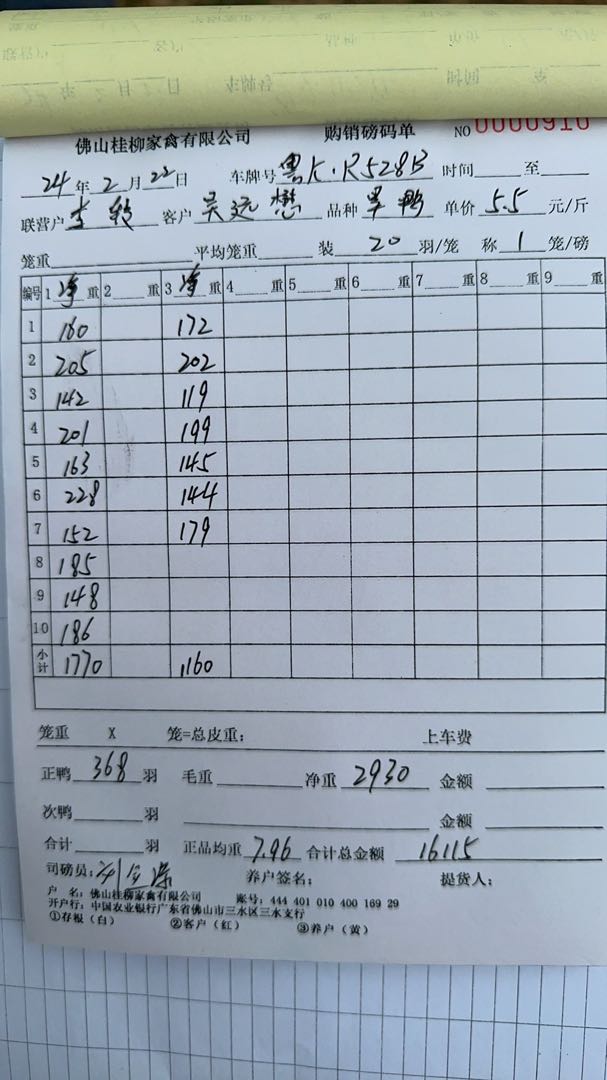 佛山桂柳家禽有限公司 购销磅码单 NO 0000910
24年2月22日 车牌号 粤K·R528B 时间 至
联营户 李 客户 吴远懋 品种 旱鸭 单价 5.5 元/斤
笼重 平均笼重 装 20 羽/笼 称 1 笼/磅
编号 1 净 重 2 重 3 净 重 4 重 5 重 6 重 7 重 8 重 9 重
1 160 172
2 205 202
3 142 119
4 201 199
5 163 145
6 228 144
7 152 179
8 185
9 148
10 186
小计 1770 1160
笼重 X 笼=总皮重: 上车费
正鸭 368 羽 毛重 净重 2930 金额
次鸭 羽 金额
合计 羽 正品均重 7.96 合计总金额 16115
司磅员: 养户签名: 提货人:
户 名: 佛山桂柳家禽有限公司 账号: 444 401 010 400 169 29
开户行: 中国农业银行广东省佛山市三水区三水支行
①存根(白) ②客户(红) ③养户(黄)